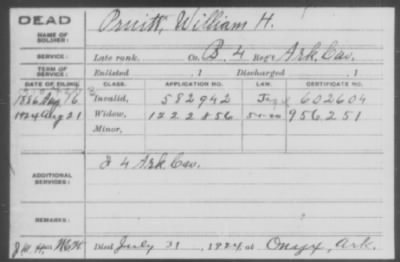 DEAD
NAME OF SOLDIER: Pruitt, William H.
SERVICE: Late rank, Co. B. 4 Reg't Ark. Cav.
TERM OF SERVICE: Enlisted , 1 Discharged , 1
DATE OF FILING. CLASS. APPLICATION NO. LAW. CERTIFICATE NO.
1886 Aug 16 Invalid, 582942 602604
1924 Aug 21 Widow, 1222856 956251
Minor,
ADDITIONAL SERVICES: 4 Ark Cav.
REMARKS:
Died July 31, 1924, at Onyx, Ark.